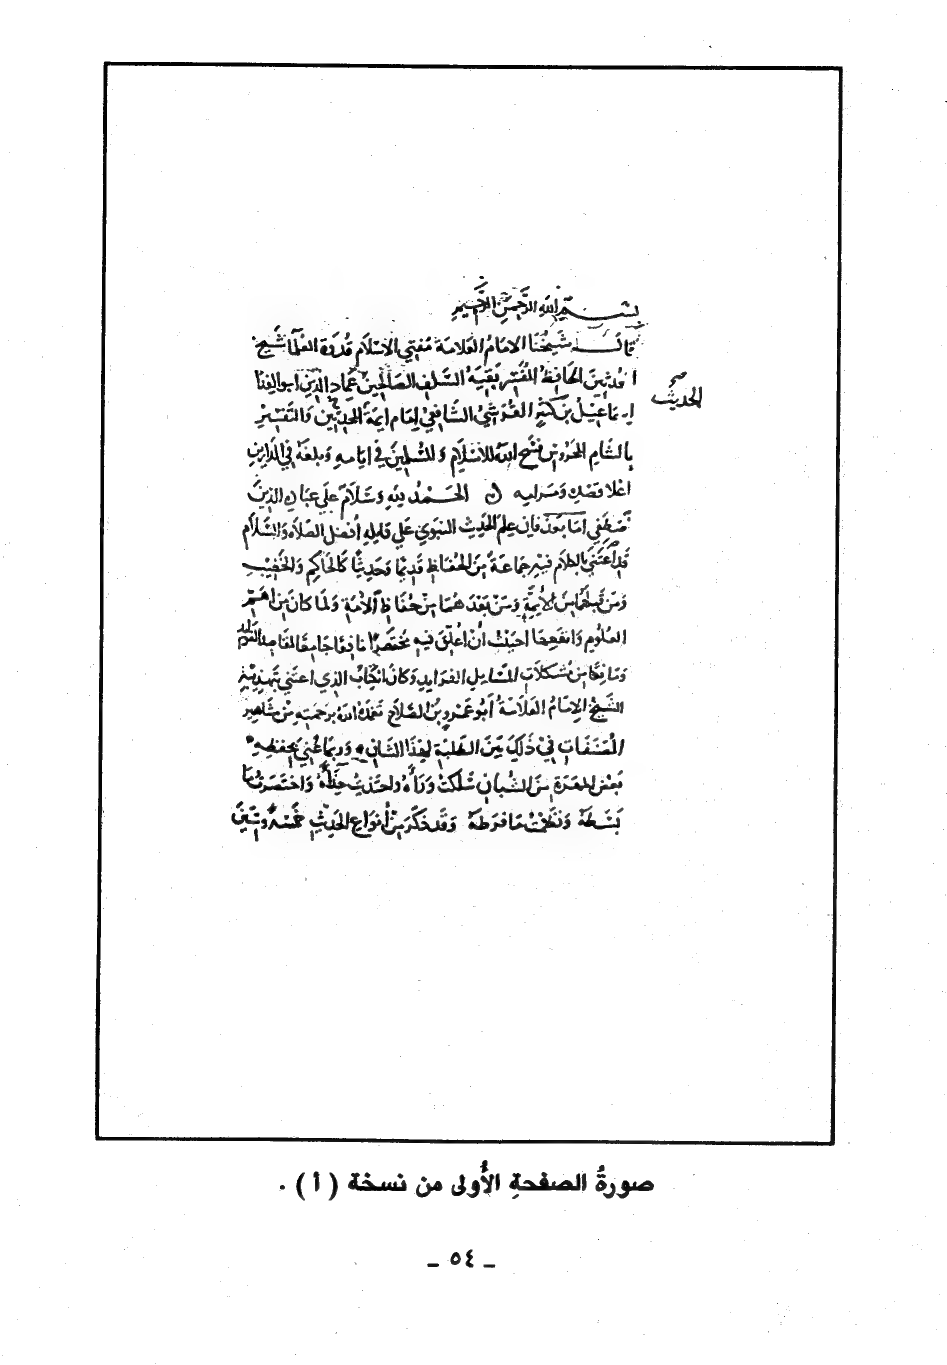 بسم الله الرحمن الرحيم
قال شيخنا الامام العلامة مفتي الاسلام قدوة العلما شيخ
المحدثين الحافظ المفسر بقية السلف الصالحين عماد الدين ابو الفدا
اسماعيل بن كثير القرشي الشافعي امام ايمة الحديث والتفسير
الحديث صح
بالشام المحروس فسح الله للاسلام وللمسلمين في ايامه وبلغه في الدارين
اعلا قصده ومرامه الحمد لله وسلام على عباده الذين
اصطفى اما بعد فان علم الحديث النبوي على قايله أفضل الصلاة والسلام
قد اعتنى بالكلام فيه جماعة من الحفاظ قديما وحديثا كالحاكم والخطيب
ومن قبلهما من الأيمة ومن بعدهما من حفاظ الأمة ولما كان من أهم
العلوم وانفعها احببت ان أعلق فيه مختصرا نافعا جامعا لمقاصد الفوايد
ومانعا من مشكلات المسايل الفرايد وكان الكتاب الذي اعتنى بتهذيبه
الشيخ الامام العلامة أبو عمرو بن الصلاح تغمده الله برحمته من مشاهير
المصنفات في ذلك بين الطلبة لهذا الشان وربما عني بحفظه
بعض المهرة من الشبان سلكت وراءه واحتذيت حذاءه واختصرت ما
بسطه ونظمت ما فرطه وقد ذكر من أنواع الحديث خمسة وستين
صورةُ الصفحةِ الأُولى من نسخة ( أ ) .
ـ ٥٤ ـ